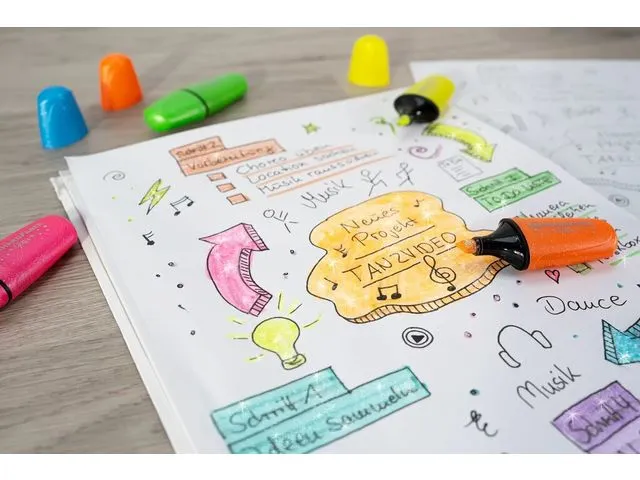 Schritt 2
Vorbereitung
Choreo üben
Location suchen
Musik raussuchen
Musik
Neues
Projekt
TANZVIDEO
To Do Liste
Dance
Musik
Schritt 1
Ideen sammeln
Schritt 4